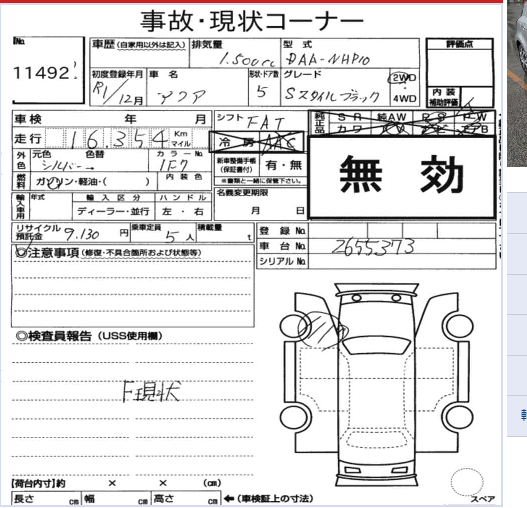 事故・現状コーナー
No.
11492
車歴 (自家用以外は記入) 排気量 1.500cc 型式 DAA-NHP10
評価点
初度登録年月 R1/12月 車名 アクア 形状・ドア数 5 グレード Sスタイルブラック 2WD 4WD
内装補助評価
車検 年 月
シフト FAT
純正品 SR 純AW PS PW
カワ
走行 16,354 Km マイル
冷房 AAC
外色 元色 シルバー 色替 → カラーNo. 1F7
新車整備手帳(保証書付) 有・無
※書類と一緒に保管下さい。
無効
燃料 ガソリン・軽油・( ) 内装色
名義変更期限
月 日
輸入車用 年式 輸入区分 ハンドル
ディーラー・並行 左・右
リサイクル預託金 9.130円 乗車定員 5人 積載量 t
登録No.
車台No. 2655373
シリアルNo.
◎注意事項 (修復・不具合箇所および状態等)
◎検査員報告 (USS使用欄)
F現状
[荷台内寸]約 × × (cm)
長さ cm 幅 cm 高さ cm ←(車検証上の寸法)
スペア